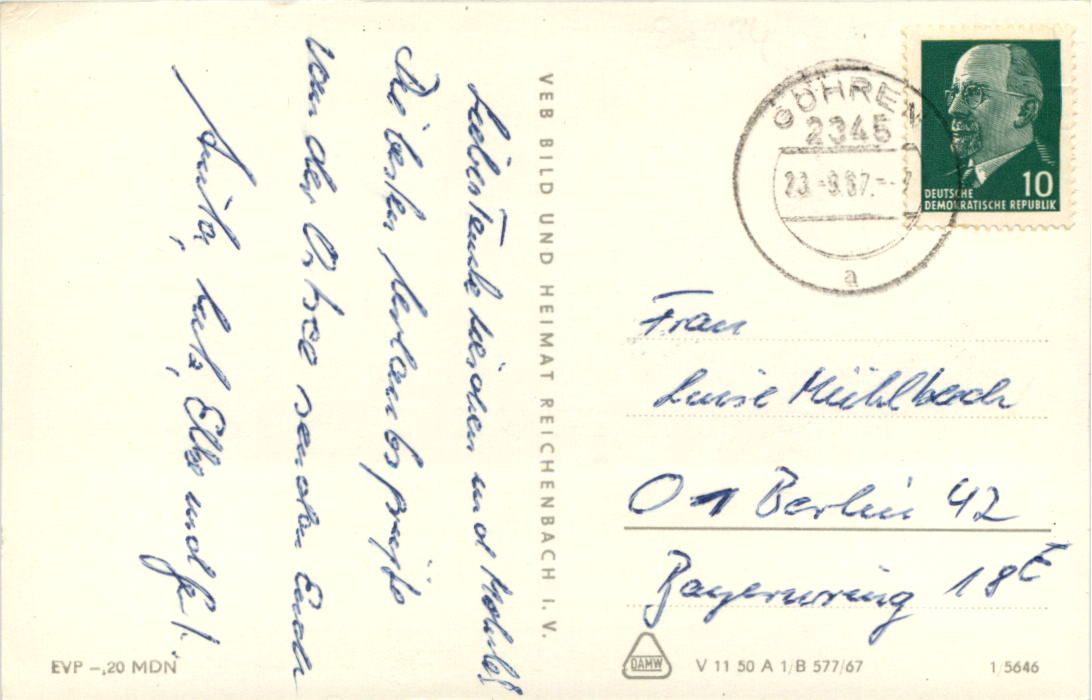 Liebes Tante Lieschen und
Die besten Urlaubsgrüße
von der Ostsee senden Euch
Anita, Lutz, Elke und
VEB BILD UND HEIMAT REICHENBACH I. V.
GÖHREN
2345
23.-9.67.-
a
10
DEUTSCHE
DEMOKRATISCHE REPUBLIK
Frau
Luise Mühlbach
Berlin 42
Bayernring 18E
EVP –,20 MDN
DAMW
V 11 50 A 1/B 577/67
1/5646